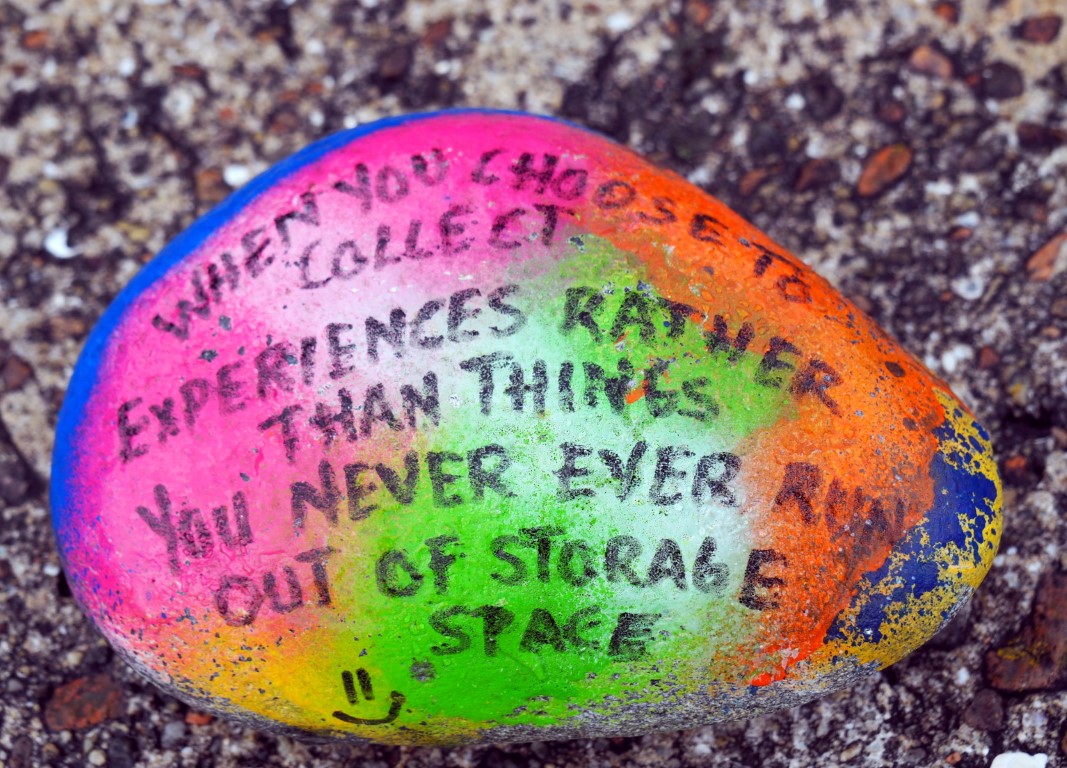 WHEN YOU CHOOSE TO
COLLECT
EXPERIENCES RATHER
THAN THINGS
YOU NEVER EVER RUN
OUT OF STORAGE
SPACE